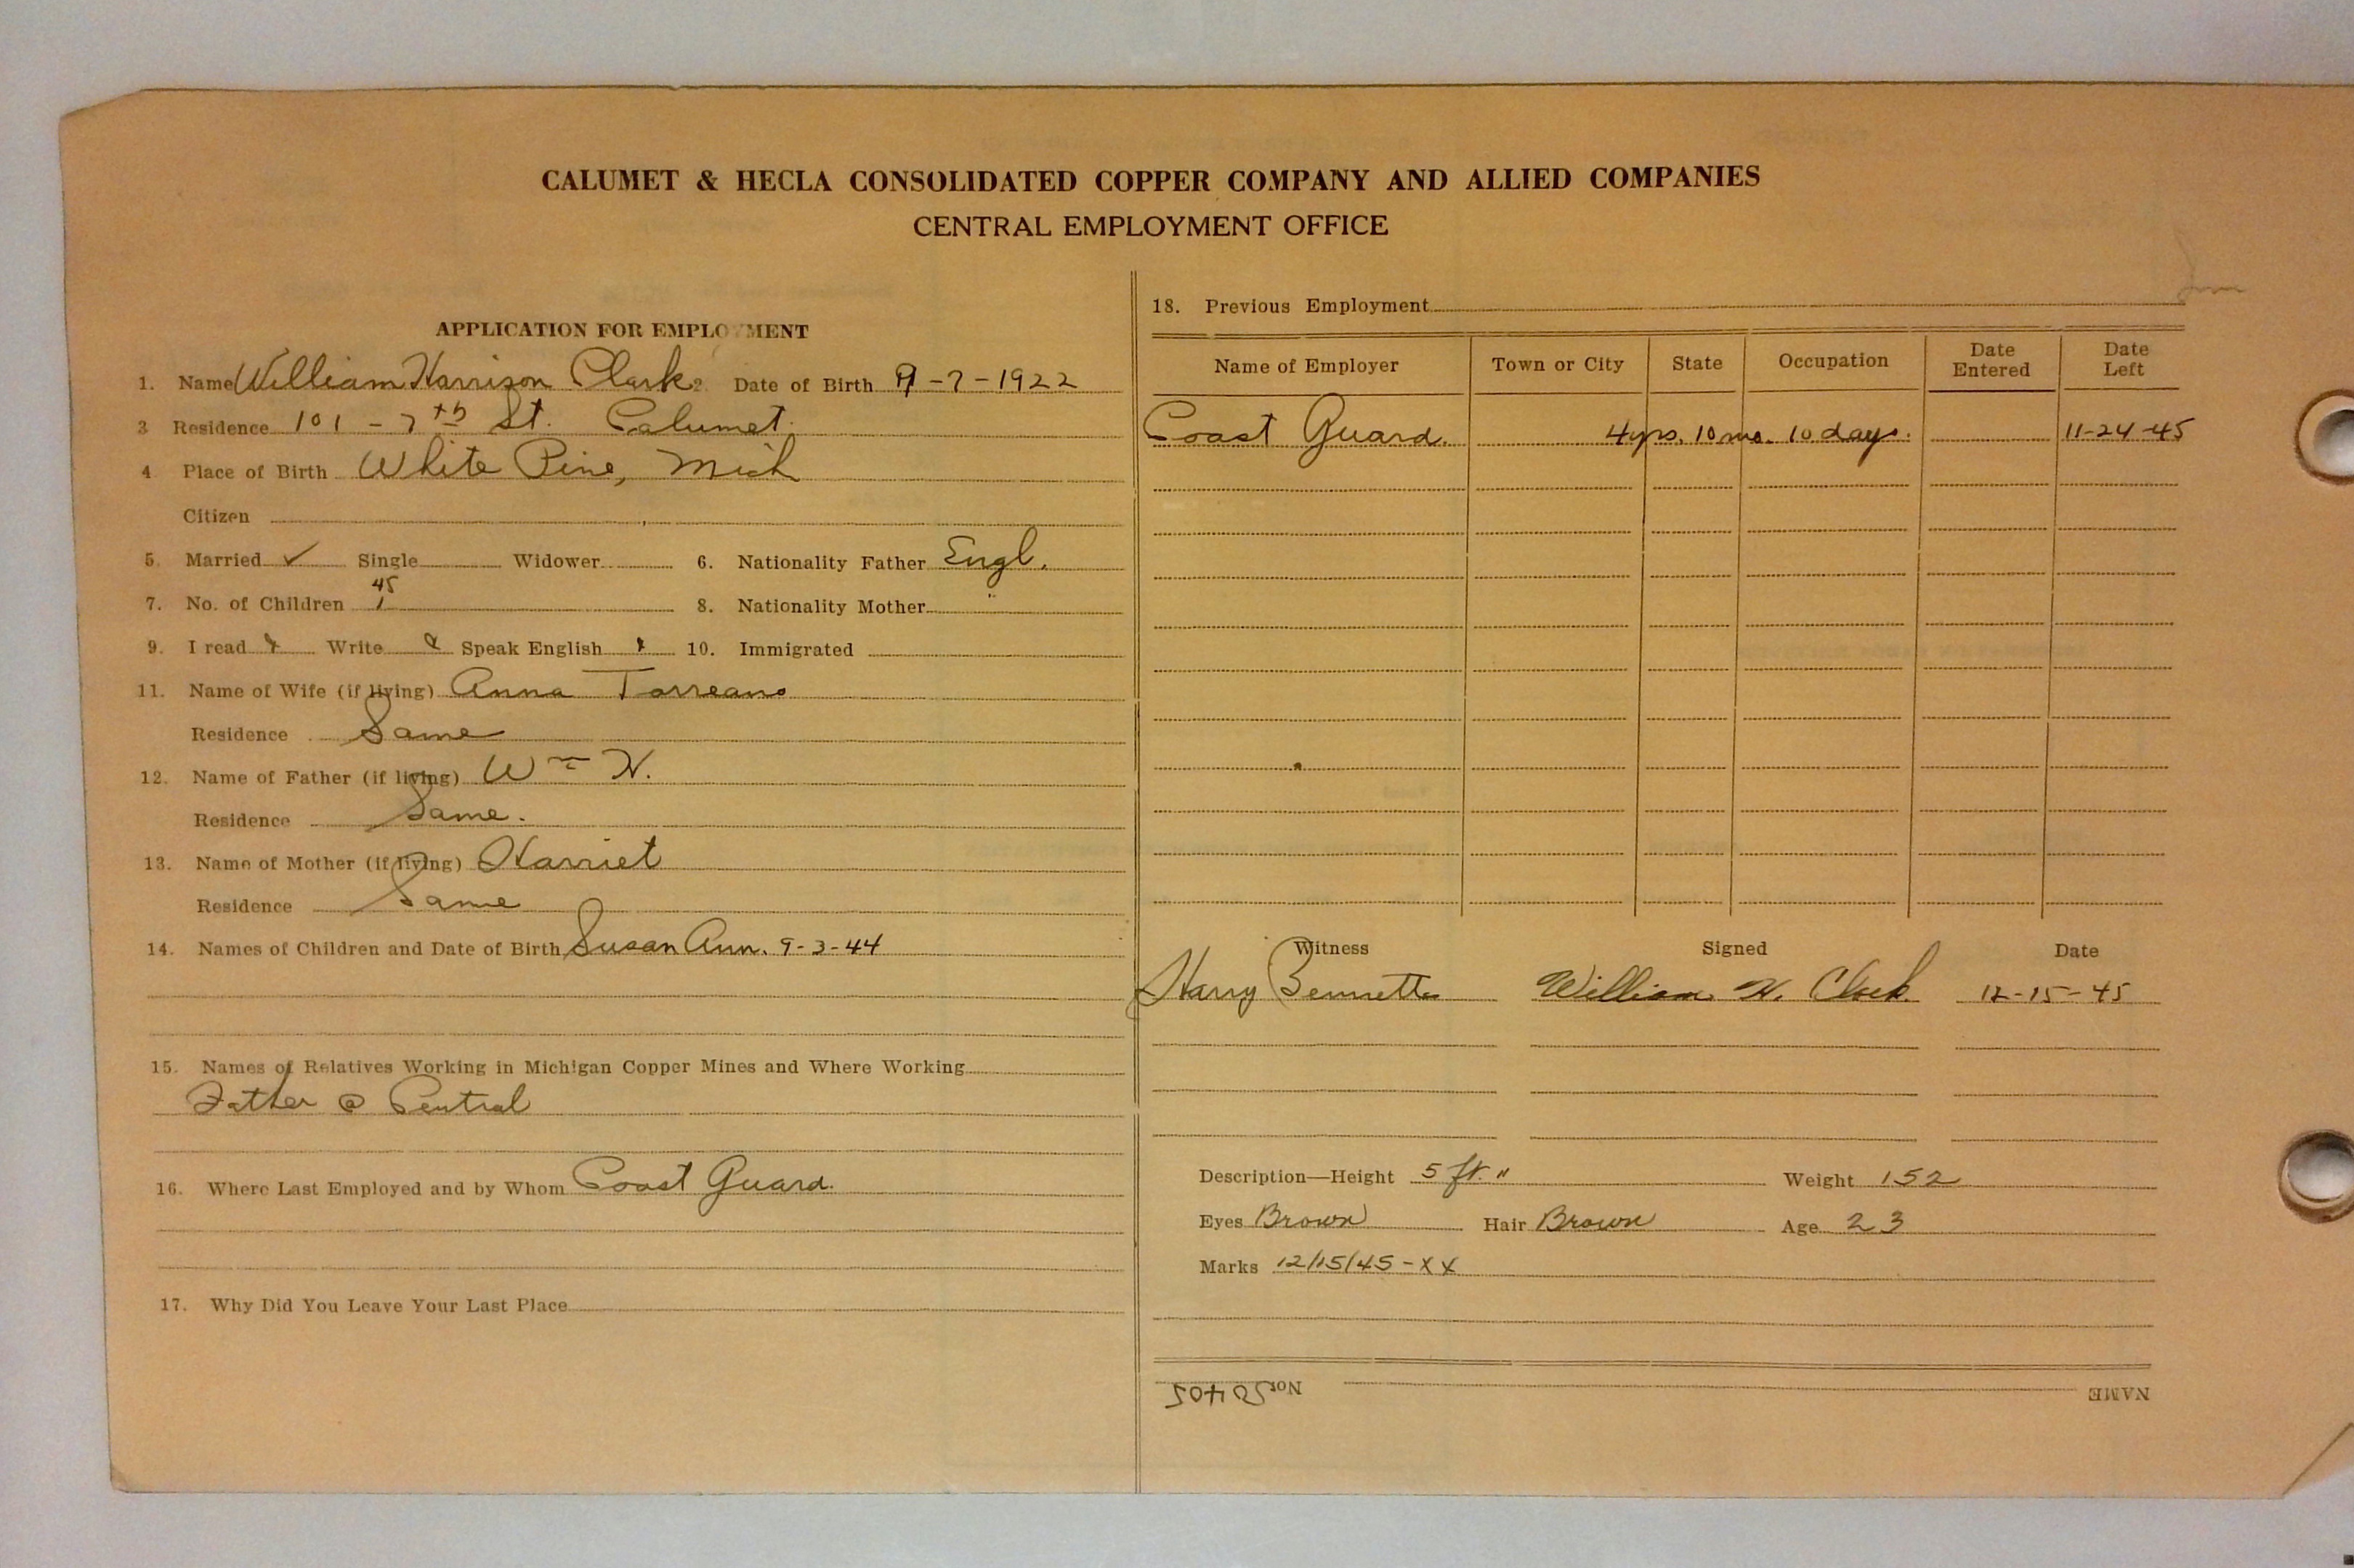 CALUMET & HECLA CONSOLIDATED COPPER COMPANY AND ALLIED COMPANIES
CENTRAL EMPLOYMENT OFFICE
APPLICATION FOR EMPLOYMENT
1. Name William Harrison Clark 2. Date of Birth 9-7-1922
3 Residence 101 - 7th St. Calumet.
4 Place of Birth White Pine, Mich
Citizen
5. Married ✓ Single Widower 6. Nationality Father Engl.
45
7. No. of Children 1 8. Nationality Mother "
9. I read x Write x Speak English x 10. Immigrated
11. Name of Wife (if living) Anna Torreano
Residence Same
12. Name of Father (if living) Wm H.
Residence Same.
13. Name of Mother (if living) Harriet
Residence Same
14. Names of Children and Date of Birth Susan Ann. 9-3-44
15. Names of Relatives Working in Michigan Copper Mines and Where Working
Father @ Central
16. Where Last Employed and by Whom Coast Guard.
17. Why Did You Leave Your Last Place
18. Previous Employment
Name of Employer Town or City State Occupation Date Entered Date Left
Coast Guard. 4yrs. 10 mo. 10 days. 11-24-45
Witness Signed Date
Harry Bennetts William H. Clark 12-15-45
Description—Height 5 ft. " Weight 152
Eyes Brown Hair Brown Age 23
Marks 12/15/45-XX
NAME No. 50405